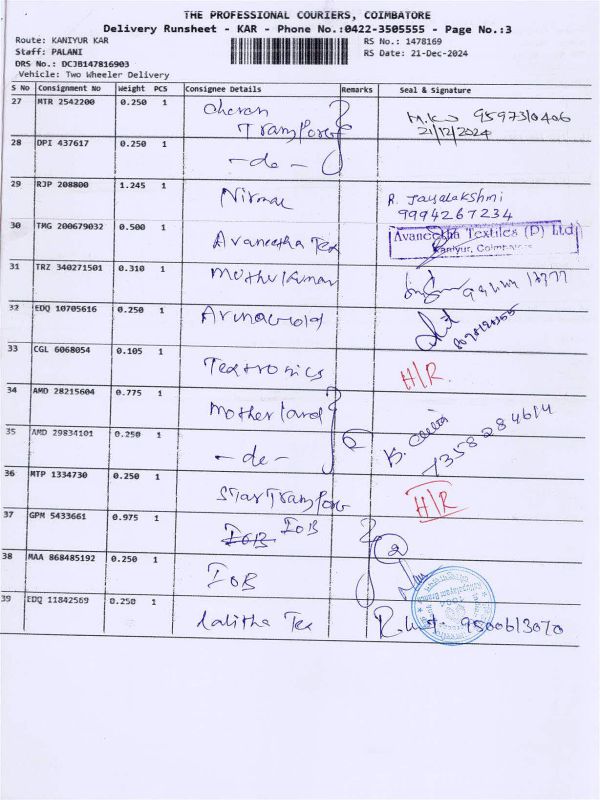 THE PROFESSIONAL COURIERS, COIMBATORE
Delivery Runsheet - KAR - Phone No.:0422-3505555 - Page No.:3
Route: KANIYUR KAR
RS No.: 1478169
Staff: PALANI
RS Date: 21-Dec-2024
DRS No.: DCJB147816903
Vehicle: Two Wheeler Delivery
S No Consignment No Weight PCS Consignee Details Remarks Seal & Signature
27 MTR 2542200 0.250 1 Cheran
Transport
21/12/2024
28 DPI 437617 0.250 1 - do -
29 RJP 208800 1.245 1 Nirmal R. Jayalakshmi
9994267234
30 TMG 200679032 0.500 1 Avaneetha Tex Avaneetha Textiles (P) Ltd
Kaniyur, Coimbatore
31 TRZ 340271501 0.310 1 Muthukumar
32 EDQ 10705616 0.250 1
33 CGL 6068054 0.105 1 Textronics H/R.
34 AMD 28215604 0.775 1 Motherland
35 AMD 29834101 0.250 1 - do - 7358284614
36 MTP 1334730 0.250 1 Star Transport H/R
37 GPM 5433661 0.975 1 IOB IOB
2
38 MAA 868485192 0.250 1 IOB
39 EDQ 11842569 0.250 1 Lalitha Tex 9500613070